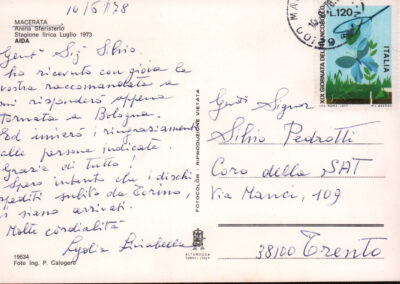 10/6/78
MACERATA
Arena Sferisterio
Stagione lirica Luglio 1973
AIDA
Gent. Sig. Silvio.
ho ricevuto con gioia la
vostra raccomandata a
mi rispondere appena
tornata a Bologna.
Ed invierò i ringraziamenti
alle persone indicate.
Grazie di tutto!
Spero intanto che i dischi
spediti subito da Torino,
vi siano arrivati.
Molte cordialità
Lydia
19634
Foto Ing. P. Calogero
FOTOCOLOR - RIPRODUZIONE VIETATA
ALTEROCCA
TERNI - ITALY
L.120
XIX GIORNATA DEL FRANCOBOLLO
ITALIA
Gent. Signor
Silvio Pedrotti
Coro della SAT
Via Manci, 109
38100 Trento